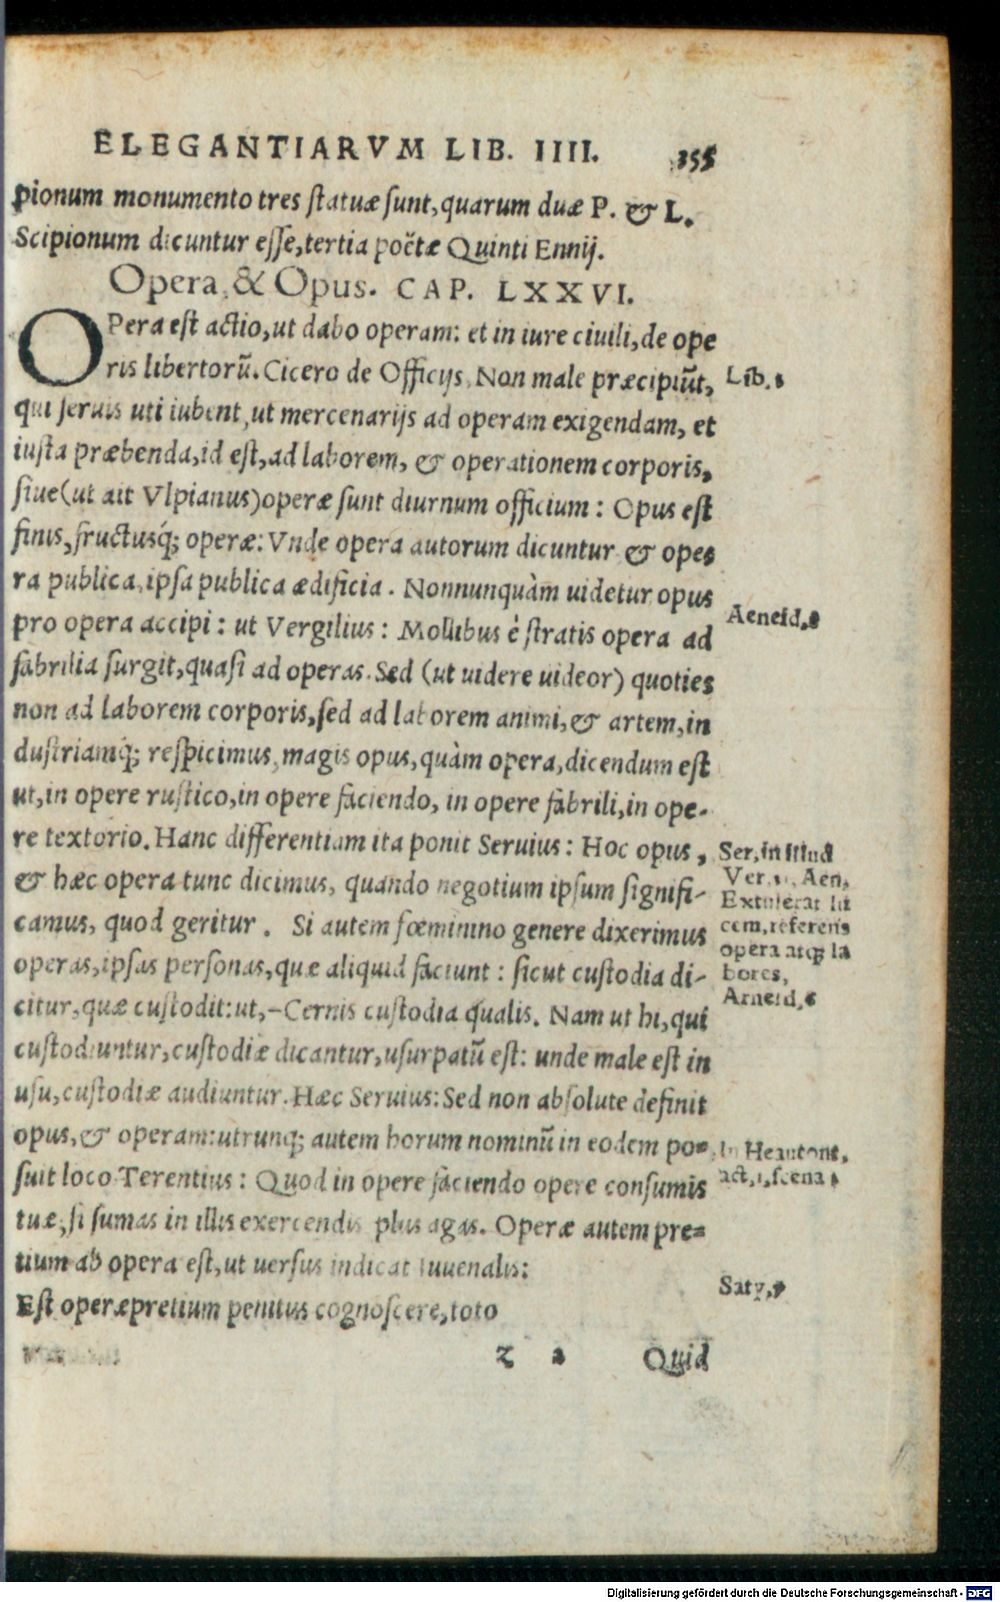 ELEGANTIARVM LIB. IIII. 355
pionum monumento tres statuæ sunt, quarum duæ P. & L.
Scipionum dicuntur esse, tertia poëtæ Quinti Ennij.
Opera, & Opus. CAP. LXXVI.
OPera est actio, ut dabo operam: et in iure ciuili, de ope
ris libertorũ. Cicero de Officijs, Non male præcipiũt,
Lib. 1
qui seruis uti iubent, ut mercenarijs ad operam exigendam, et
iusta præbenda, id est, ad laborem, & operationem corporis,
siue (ut ait Vlpianus) operæ sunt diurnum officium: Opus est
finis, fructusq́; operæ: Vnde opera autorum dicuntur & ope=
ra publica, ipsa publica ædificia. Nonnunquàm uidetur opus
pro opera accipi: ut Vergilius: Mollibus è stratis opera ad
Aeneid. 8
fabrilia surgit, quasi ad operas. Sed (ut uidere uideor) quoties
non ad laborem corporis, sed ad laborem animi, & artem, in
dustriamq́; respicimus, magis opus, quàm opera, dicendum est
ut, in opere rustico, in opere faciendo, in opere fabrili, in ope-
re textorio. Hanc differentiam ita ponit Seruius: Hoc opus,
& hæc opera tunc dicimus, quando negotium ipsum signifi-
camus, quod geritur. Si autem fœminino genere dixerimus
operas, ipsas personas, quæ aliquid faciunt: sicut custodia di-
citur, quæ custodit: ut, -Cernis custodia qualis. Nam ut hi, qui
Ser. in illud
Ver. 11. Aen.
Extulerat lu
cem, referens
opera atq; la
bores,
Aeneid. 6
custodiuntur, custodiæ dicantur, usurpatũ est: unde male est in
usu, custodiæ audiuntur. Hæc Seruius: Sed non absolute definit
opus, & operam: utrunq; autem horum nominũ in eodem po=
suit loco Terentius: Quod in opere faciendo opere consumis
In Heautont.
act. 1. scena 1
tuæ, si sumas in illis exercendis plus agas. Operæ autem pre=
tium ab opera est, ut uersus indicat Iuuenalis:
Est operæpretium penitus cognoscere, toto
Saty.
z 2 Quid
Digitalisierung gefördert durch die Deutsche Forschungsgemeinschaft - DFG